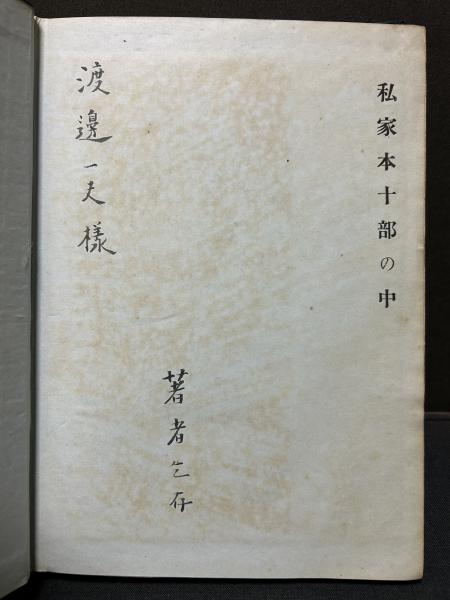 私家本十部の中
著者乞存
渡邊一夫様